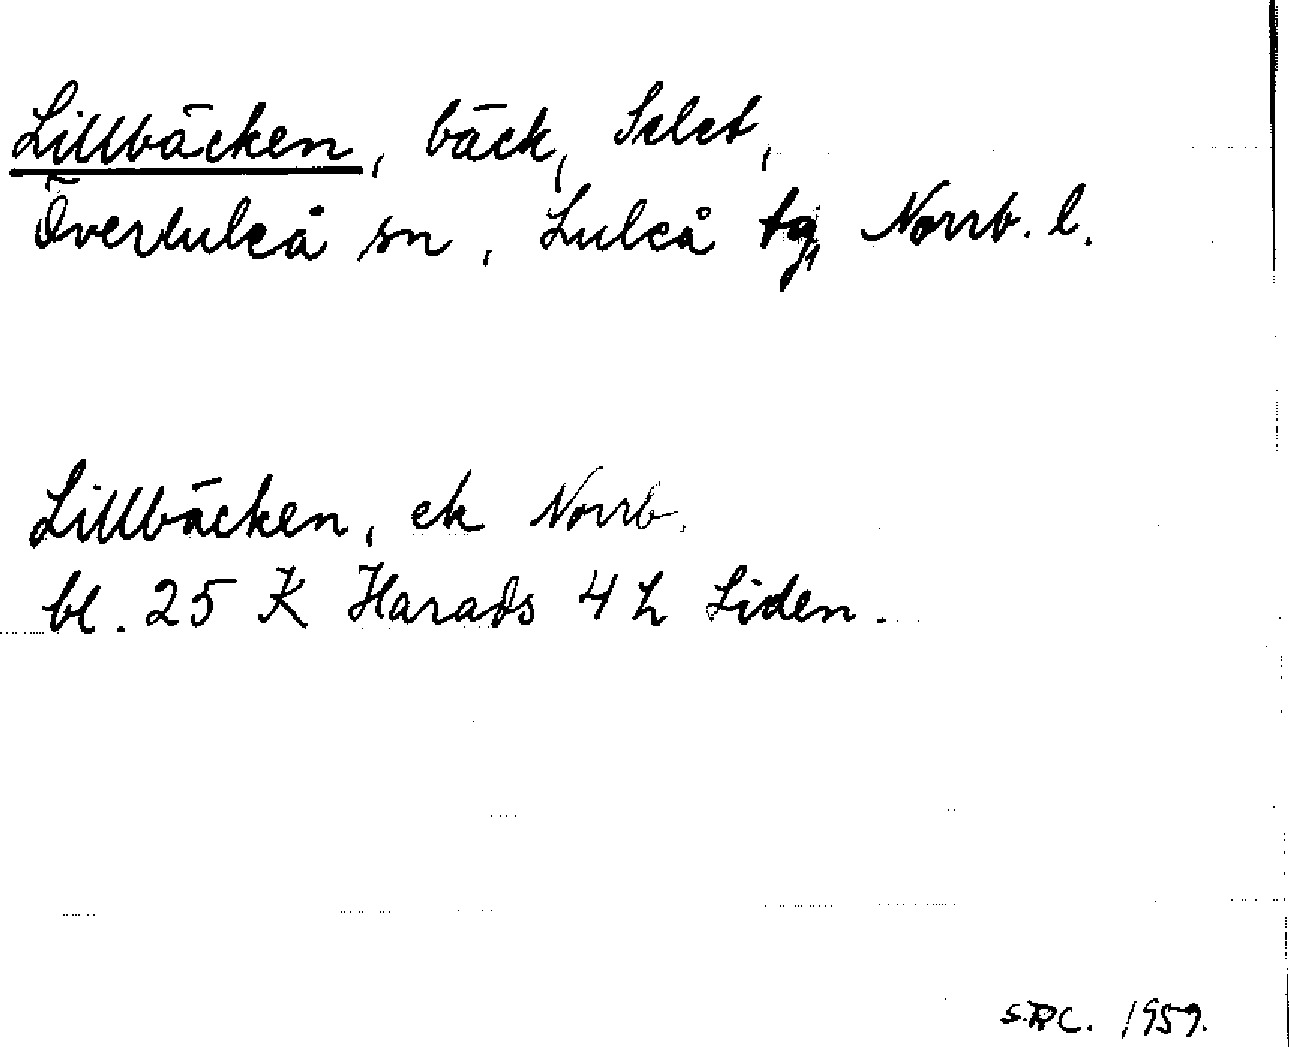 Lillbäcken, bäck, Selet,
Överluleå sn, Luleå tg, Norrb. l.
Lillbäcken, ek Norrb.
bl. 25 K Harads 4 h Liden.
1959.